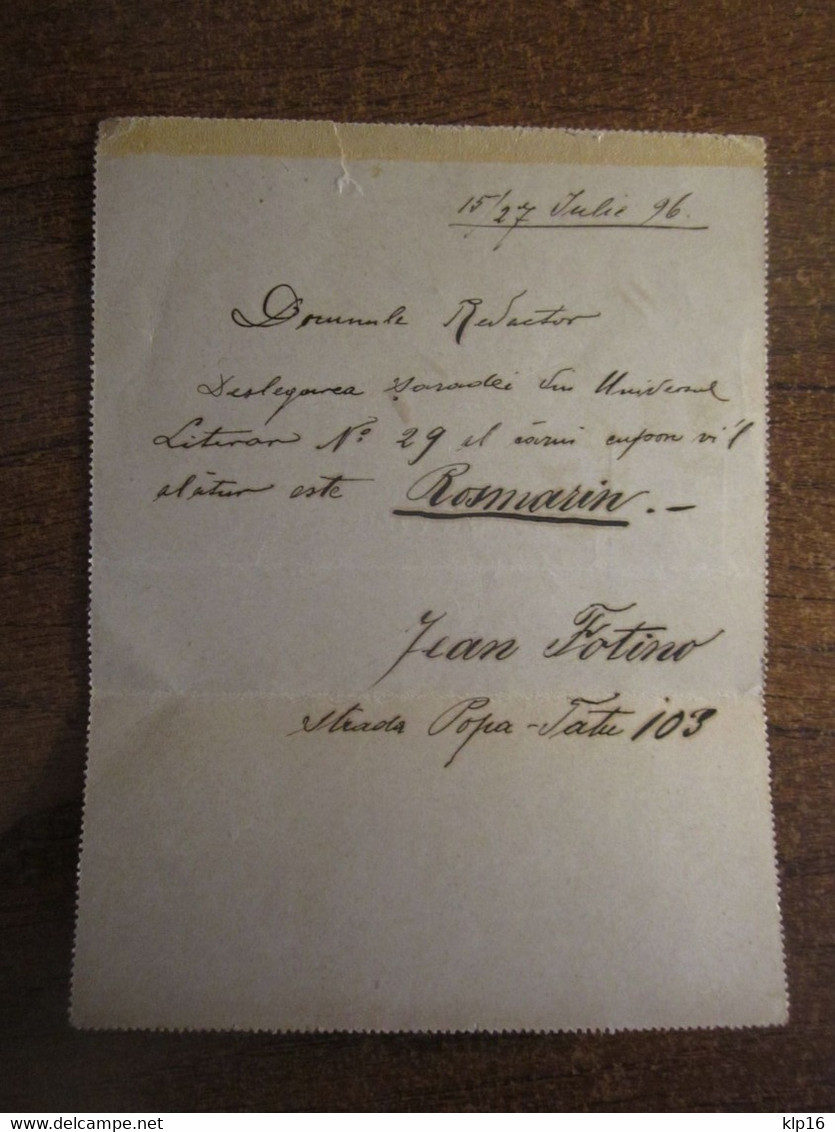 15/27 Iulie 96.
Domnule Redactor
Deslegarea șaradei din Universul
Literar No 29 al cărui cupon vi'l
alătur este Rosmarin. –
Jean Fotino
Strada Popa-Tatu 103
klp16